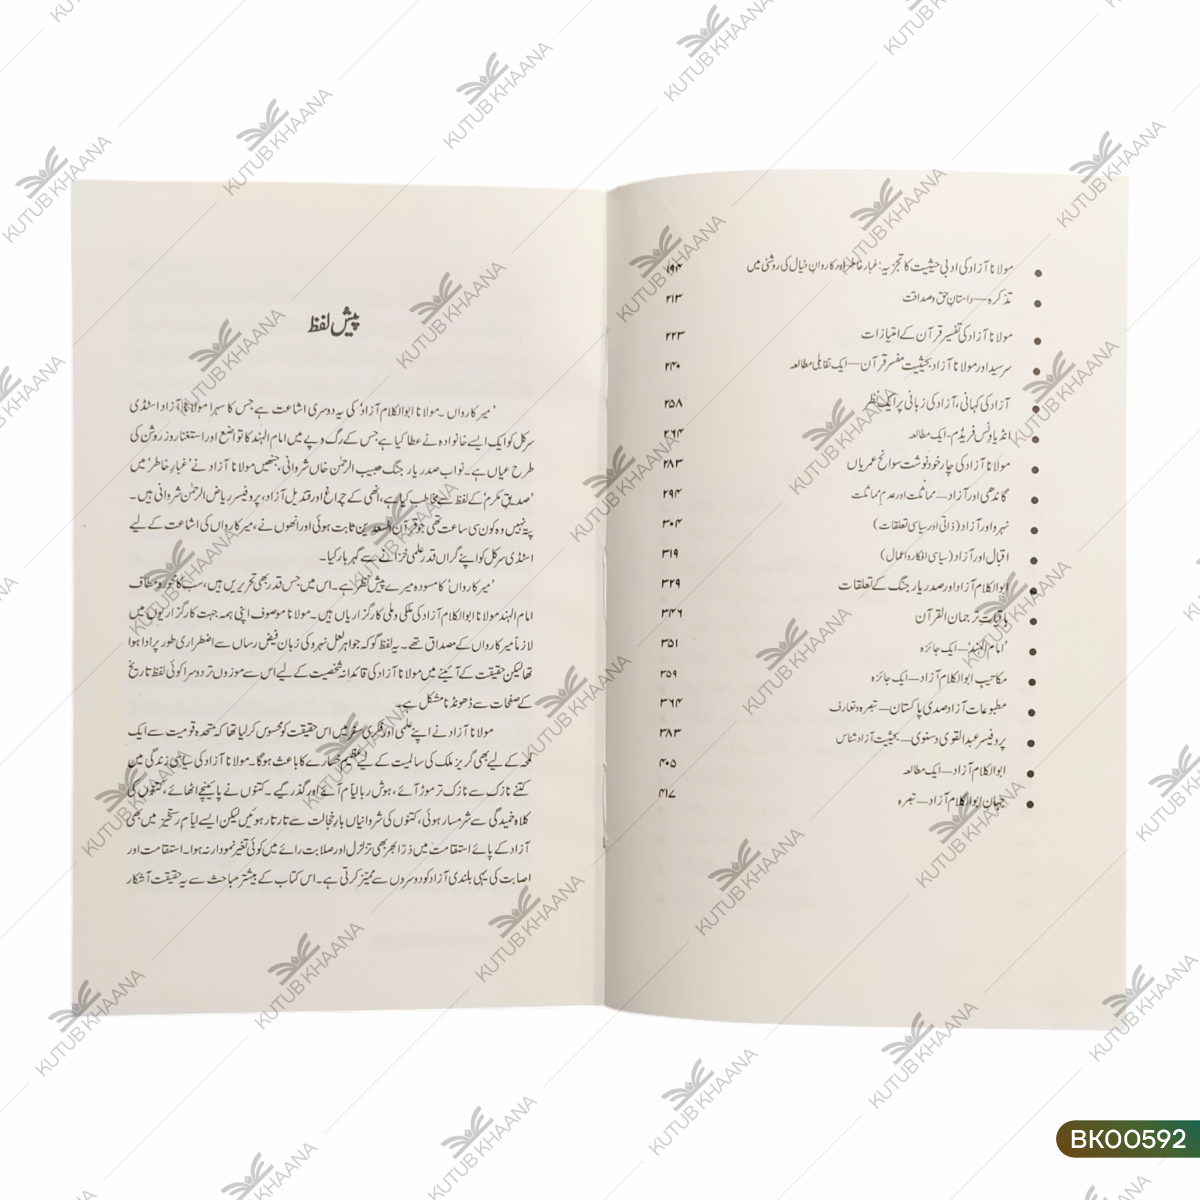 مولانا آزاد کی ادبی حیثیت کا تجزیہ: غبار خاطر اور کاروان خیال کی روشنی میں ۱۹۴
تذکرہ — داستانِ حق و صداقت ۲۱۳
مولانا آزاد کی تفسیر قرآن کے امتیازات ۲۲۳
سرسید اور مولانا آزاد بحیثیت مفسر قرآن — ایک تقابلی مطالعہ ۲۴۰
آزاد کی کہانی، آزاد کی زبانی پر ایک نظر ۲۵۸
انڈیا ونس فریڈم - ایک مطالعہ ۲۶۴
مولانا آزاد کی چار خود نوشت سوانح عمریاں ۲۸۳
گاندھی اور آزاد — مماثلت اور عدم مماثلت ۲۹۴
نہرو اور آزاد (ذاتی اور سیاسی تعلقات) ۳۰۴
اقبال اور آزاد (سیاسی افکار و اعمال) ۳۱۹
ابوالکلام آزاد اور صدر یار جنگ کے تعلقات ۳۲۹
باقیاتِ ترجمان القرآن ۳۴۶
'امام الہند' — ایک جائزہ ۳۵۱
مکاتیب ابوالکلام آزاد — ایک جائزہ ۳۵۹
مطبوعات آزاد صدی پاکستان — تبصرہ و تعارف ۳۶۴
پروفیسر عبدالقوی دسنوی — بحیثیت آزاد شناس ۳۸۳
ابوالکلام آزاد — ایک مطالعہ ۴۰۵
جہانِ ابوالکلام آزاد — تبصرہ ۴۱۷
پیش لفظ
'میر کارواں ۔ مولانا ابوالکلام آزاد' کی یہ دوسری اشاعت ہے جس کا سہرا مولانا آزاد اسٹڈی
سرکل کو ایک ایسے خانوادہ نے عطا کیا ہے جس کے رگ و پے میں امام الہند کا تواضع اور استغنا روز روشن کی
طرح عیاں ہے۔ نواب صدر یار جنگ حبیب الرحمٰن خاں شروانی، جنھیں مولانا آزاد نے 'غبار خاطر' میں
'صدیق مکرم' کے لفظ سے مخاطب کیا ہے، انھی کے چراغ اور قندیل آزاد، پروفیسر ریاض الرحمٰن شروانی ہیں۔
پتہ نہیں وہ کون سی ساعت تھی جو قرآن السعدین ثابت ہوئی اور انھوں نے، میر کارواں کی اشاعت کے لیے
اسٹڈی سرکل کو اپنے گراں قدر علمی خزانے سے گہر بار کیا۔
'میر کارواں' کا مسودہ میرے پیش نظر ہے۔ اس میں جس قدر بھی تحریریں ہیں، سب کا محور و مطاف
امام الہند مولانا ابوالکلام آزاد کی ملکی و ملی کارگزاریاں ہیں۔ مولانا موصوف اپنی ہمہ جہت کارگزاریوں میں
لازماً میر کارواں کے مصداق تھے۔ یہ لفظ گو کہ جواہر لعل نہرو کی زبان فیض رساں سے اضطراری طور پر ادا ہوا
تھا لیکن حقیقت کے آئینے میں مولانا آزاد کی قائدانہ شخصیت کے لیے اس سے موزوں تر دوسرا کوئی لفظ تاریخ
کے صفحات سے ڈھونڈنا مشکل ہے۔
مولانا آزاد نے اپنے علمی اور فکری سفر میں اس حقیقت کو محسوس کر لیا تھا کہ متحدہ قومیت سے ایک
لمحہ کے لیے بھی گریز ملک کی سالمیت کے لیے عظیم خسارے کا باعث ہوگا۔ مولانا آزاد کی سیاسی زندگی میں
کتنے نازک سے نازک تر موڑ آئے، ہوش ربا ایام آئے اور گذر گیے۔ کتنوں نے پائینچے اٹھائے، کتنوں کی
کلاہ خمیدگی سے شرمسار ہوئی، کتنوں کی شروانیاں بار خجالت سے تار تار ہوئیں لیکن ایسے ایام رستخیز میں بھی
آزاد کے پائے استقامت میں ذرّا بھر بھی تزلزل اور صلابت رائے میں کوئی تغیر نمودار نہ ہوا۔ استقامت اور
اصابت کی یہی بلندی آزاد کو دوسروں سے ممیّز کرتی ہے۔ اس کتاب کے بیشتر مباحث سے یہ حقیقت آشکار
KUTUB KHAANA
BK00592